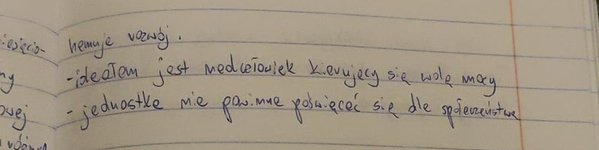 hamuje rozwój.
-ideałem jest nadczłowiek kierujący się wolą mocy
- jednostka nie powinna poświęcać się dla społeczeństwa